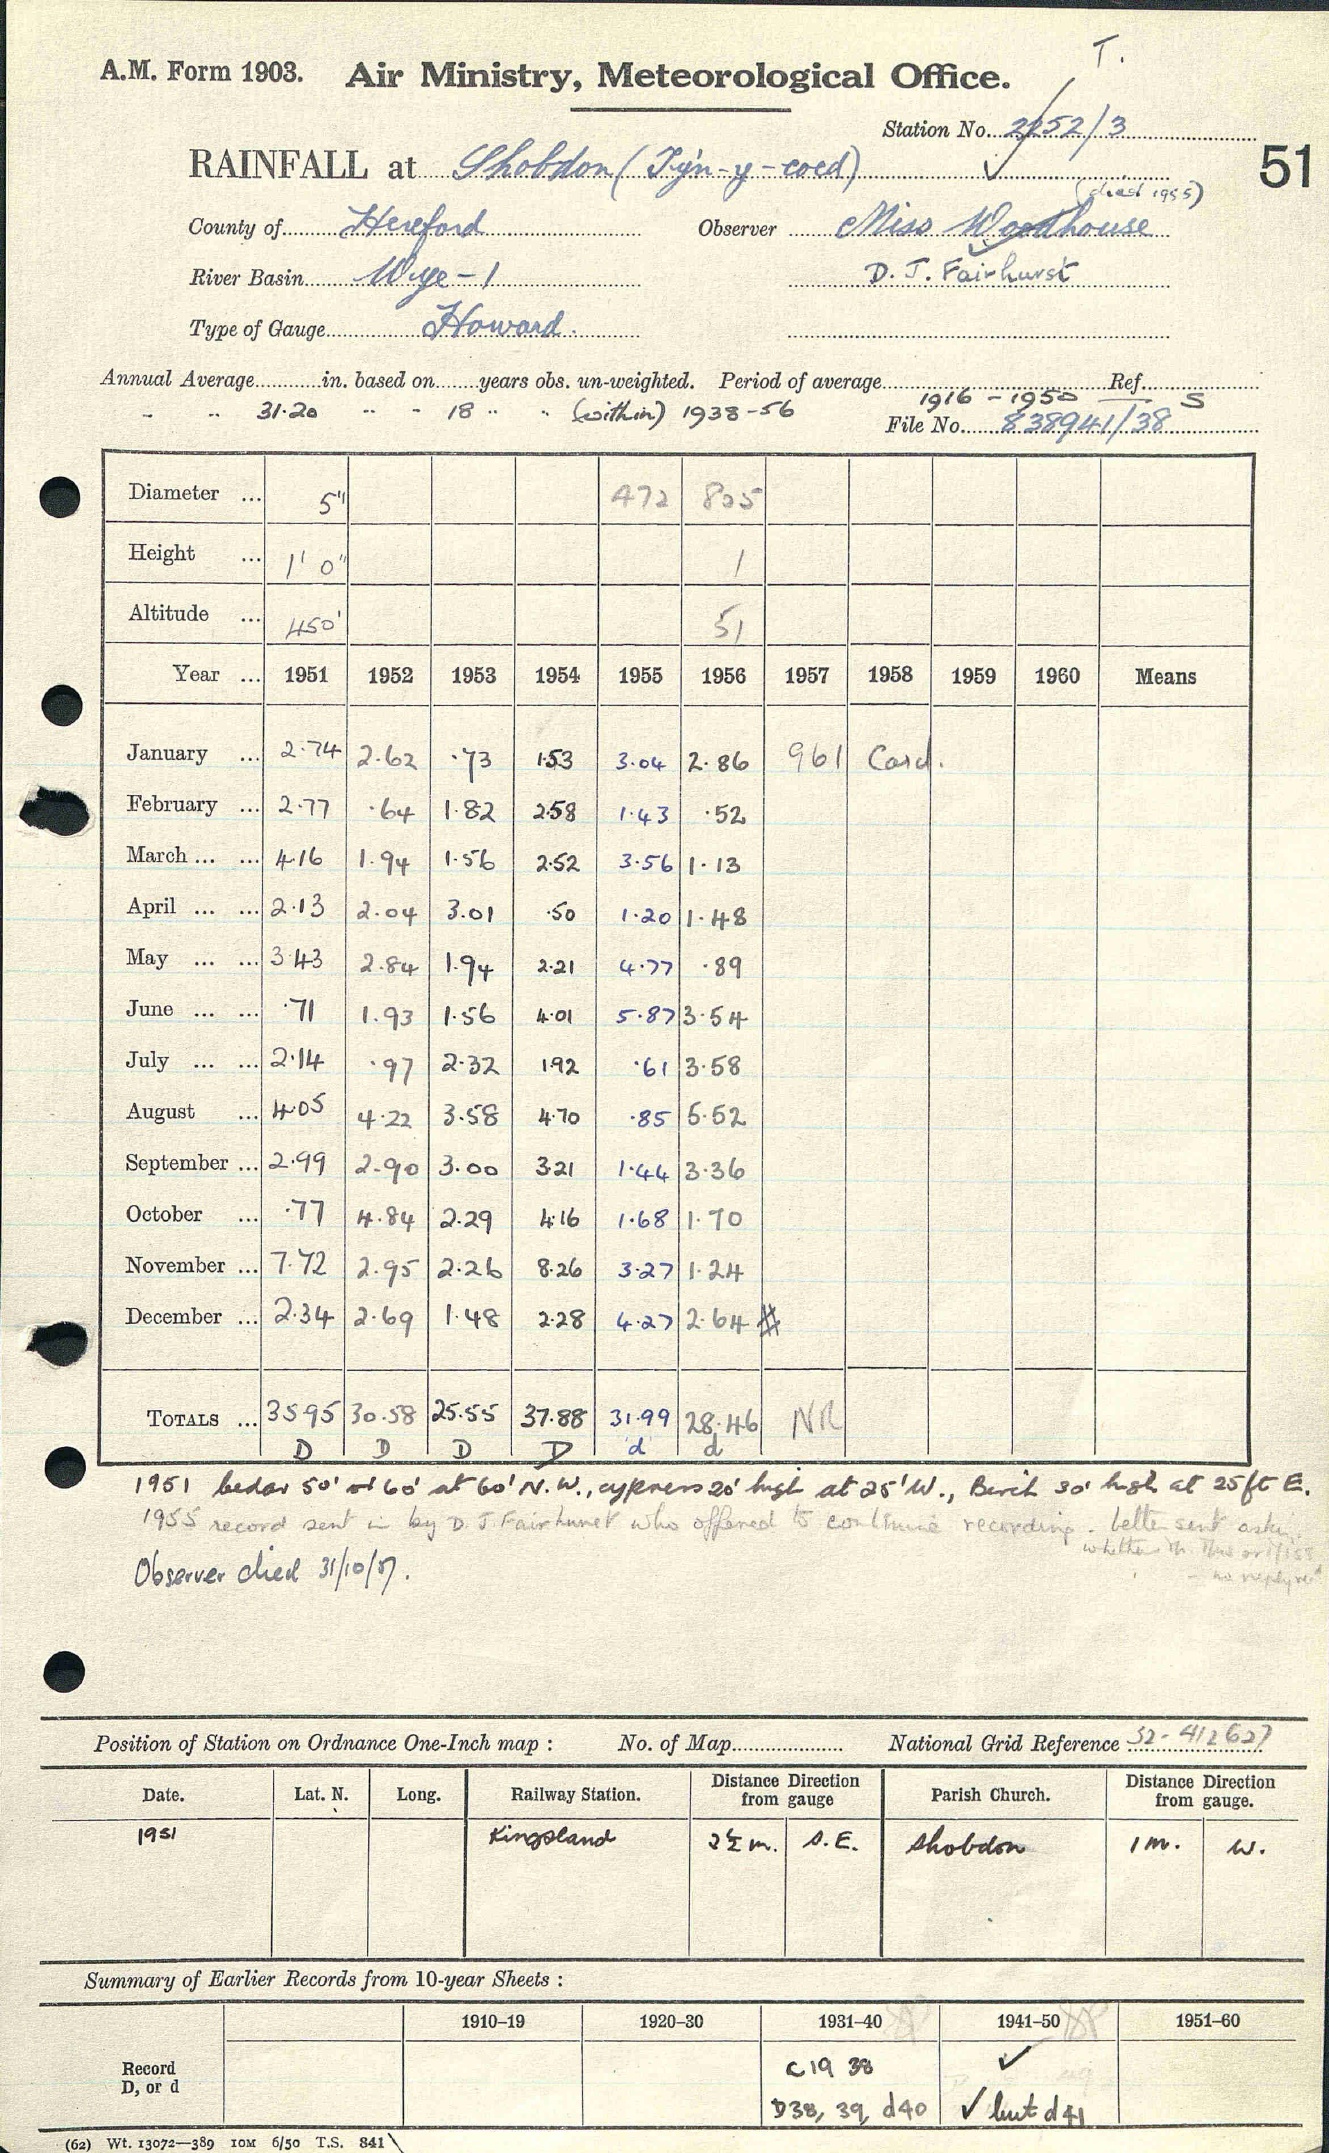 T.
A.M. Form 1903. Air Ministry, Meteorological Office.
Station No. 2252/3
RAINFALL at Shobdon (Ty'n-y-coed)
51
(died 1955)
County of Hereford Observer Miss Woodhouse
River Basin Wye-1 D. J. Fairhurst
Type of Gauge Howard.
Annual Average in. based on years obs. un-weighted. Period of average 1916-1950 Ref. S
" " 31.20 " " 18 " " (within) 1938-56
File No. 838941/38
Diameter ... 5" 472 805
Height ... 1' 0" 1
Altitude ... 450' 51
Year ... 1951 1952 1953 1954 1955 1956 1957 1958 1959 1960 Means
January ... 2.74 2.62 .73 1.53 3.04 2.86 961 Card.
February ... 2.77 .64 1.82 2.58 1.43 .52
March ... ... 4.16 1.94 1.56 2.52 3.56 1.13
April ... ... 2.13 2.04 3.01 .50 1.20 1.48
May ... ... 3.43 2.84 1.94 2.21 4.77 .89
June ... ... .71 1.93 1.56 4.01 5.87 3.54
July ... ... 2.14 .97 2.32 1.92 .61 3.58
August ... 4.05 4.22 3.58 4.70 .85 5.52
September ... 2.99 2.90 3.00 3.21 1.44 3.36
October ... .77 4.84 2.29 4.16 1.68 1.70
November ... 7.72 2.95 2.26 8.26 3.27 1.24
December ... 2.34 2.69 1.48 2.28 4.27 2.64 #
TOTALS ... 35.95 30.58 25.55 37.88 31.99 28.46 NR
D D D D d d
1951 50' 60' at 60' N.W., cypress 20' high at 25' W., Birch 30' high at 25 ft E.
1955 record sent in by D. J. Fairhurst who offered to continue recording. letter sent asking
whether
- no reply
Observer died 31/10/57.
Position of Station on Ordnance One-Inch map : No. of Map National Grid Reference 32-412627
Date. Lat. N. Long. Railway Station. Distance Direction from gauge Parish Church. Distance Direction from gauge.
1951 Kingsland 2½ m. S.E. Shobdon 1 m. W.
Summary of Earlier Records from 10-year Sheets :
1910–19 1920–30 1931–40 1941–50 1951–60
Record D, or d
C19 38 ✓
D38, 39, d40 ✓ but d41
(62) Wt. 13072—389 10M 6/50 T.S. 841